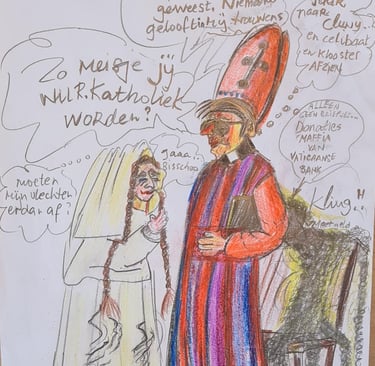 geweest. Niemand
gelooft jij trouwens
naar
Cluny..!
en celibaat
en klooster
AFZIEN
Zo Meisje jij
Wil R. Katholiek
WORDEN?
gaaa..
Bisschop
moeten
Mijn vlechten
er dan af?
ALLEEN
Donaties
MAFFIA
VAN
VATICAANSE
BANK